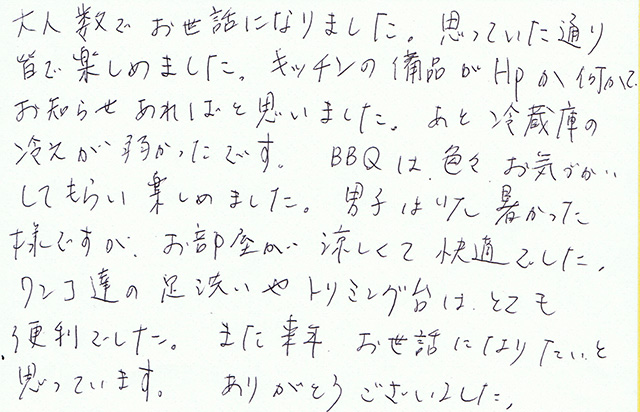 大人数で お世話になりました。思っていた通り
皆で楽しめました。キッチンの備品がHpか何かで
お知らせあればと思いました。あと冷蔵庫の
冷えが弱かったです。 BBQは、色々お気づかい
してもらい楽しめました。男子は
暑かった
様ですが、お部屋が涼しくて快適でした。
ワンコ達の足洗いやトリミング台は、とても
便利でした。また来年 お世話になりたいと
思っています。 ありがとうございました。